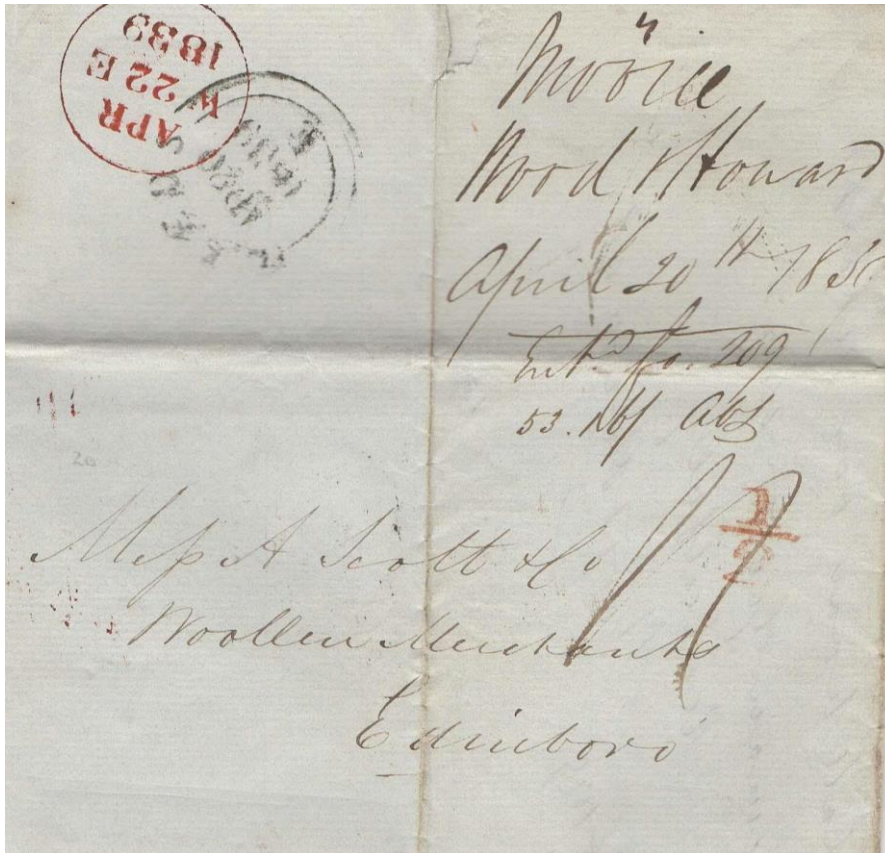 APR
22 E
1839
APR 20
1839
Invoice
Wood & Howard
April 20th 183
Entd fo. 209
53. 16/
20
Mess A Scott & Co
Woollen Merchants
Edinboro
1
2